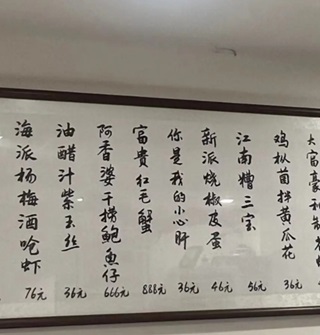 大富豪
鸡枞菌拌黄瓜花 36元
江南糟三宝 56元
新派烧椒皮蛋 46元
你是我的小心肝 36元
富貴红毛蟹 888元
阿香婆干捞鲍魚仔 666元
油醋汁紫玉丝 36元
海派杨梅酒呛虾 76元
元